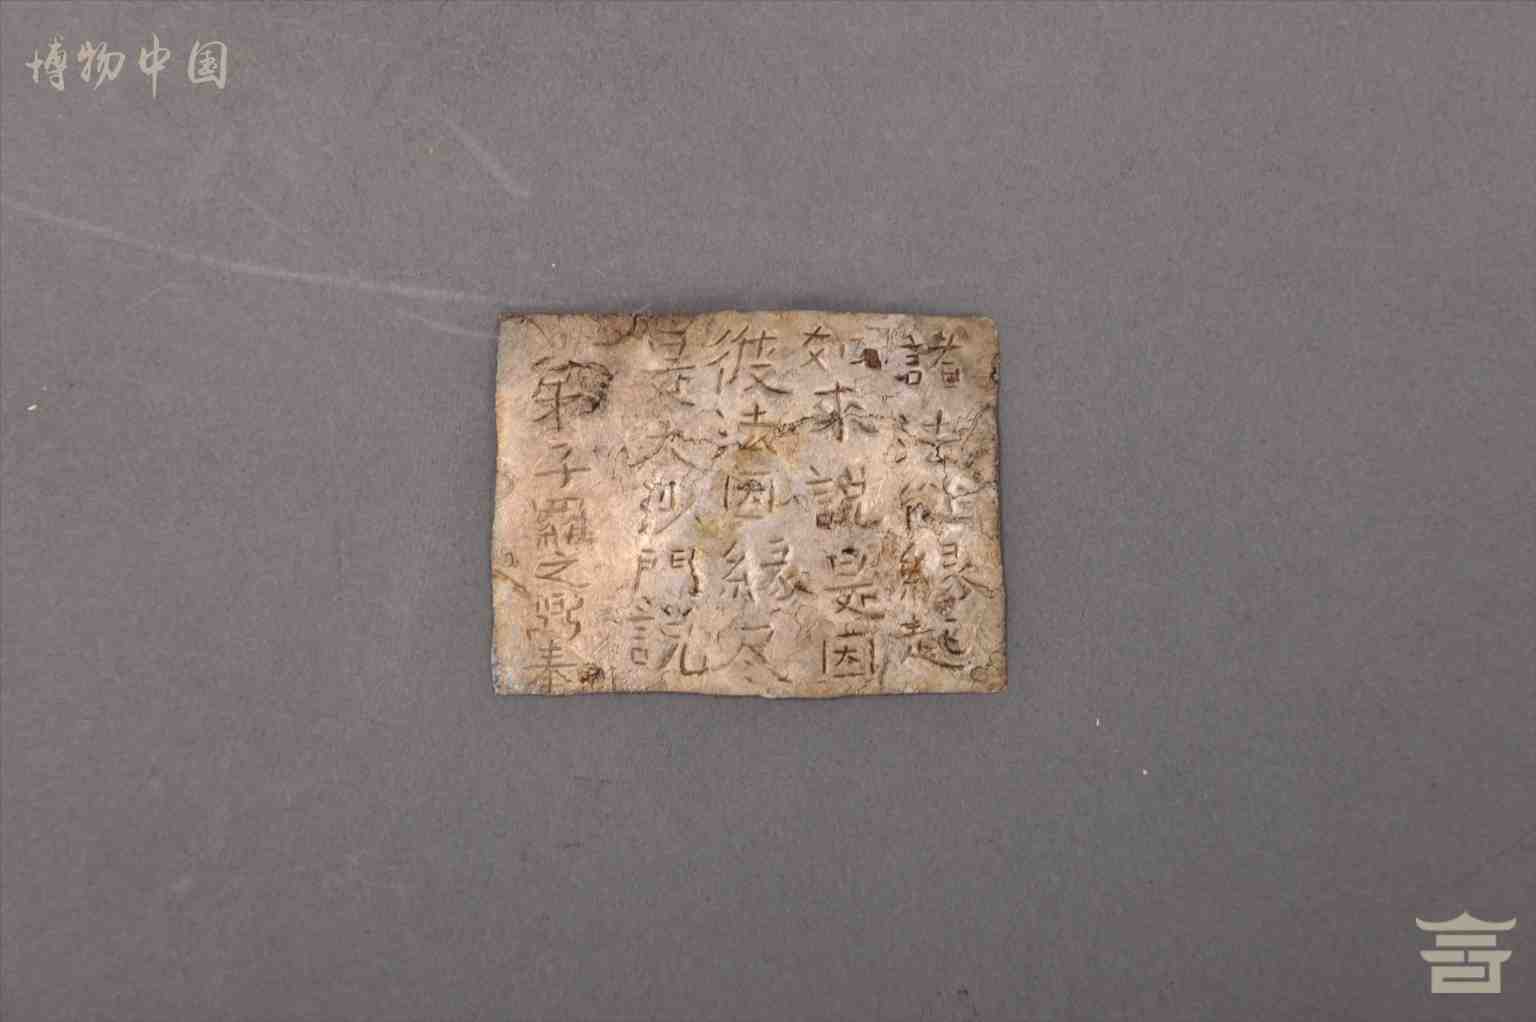 博物中国
諸法從緣起
如來説是因
彼法因緣尽
是大沙門説
弟子羅之弼奉